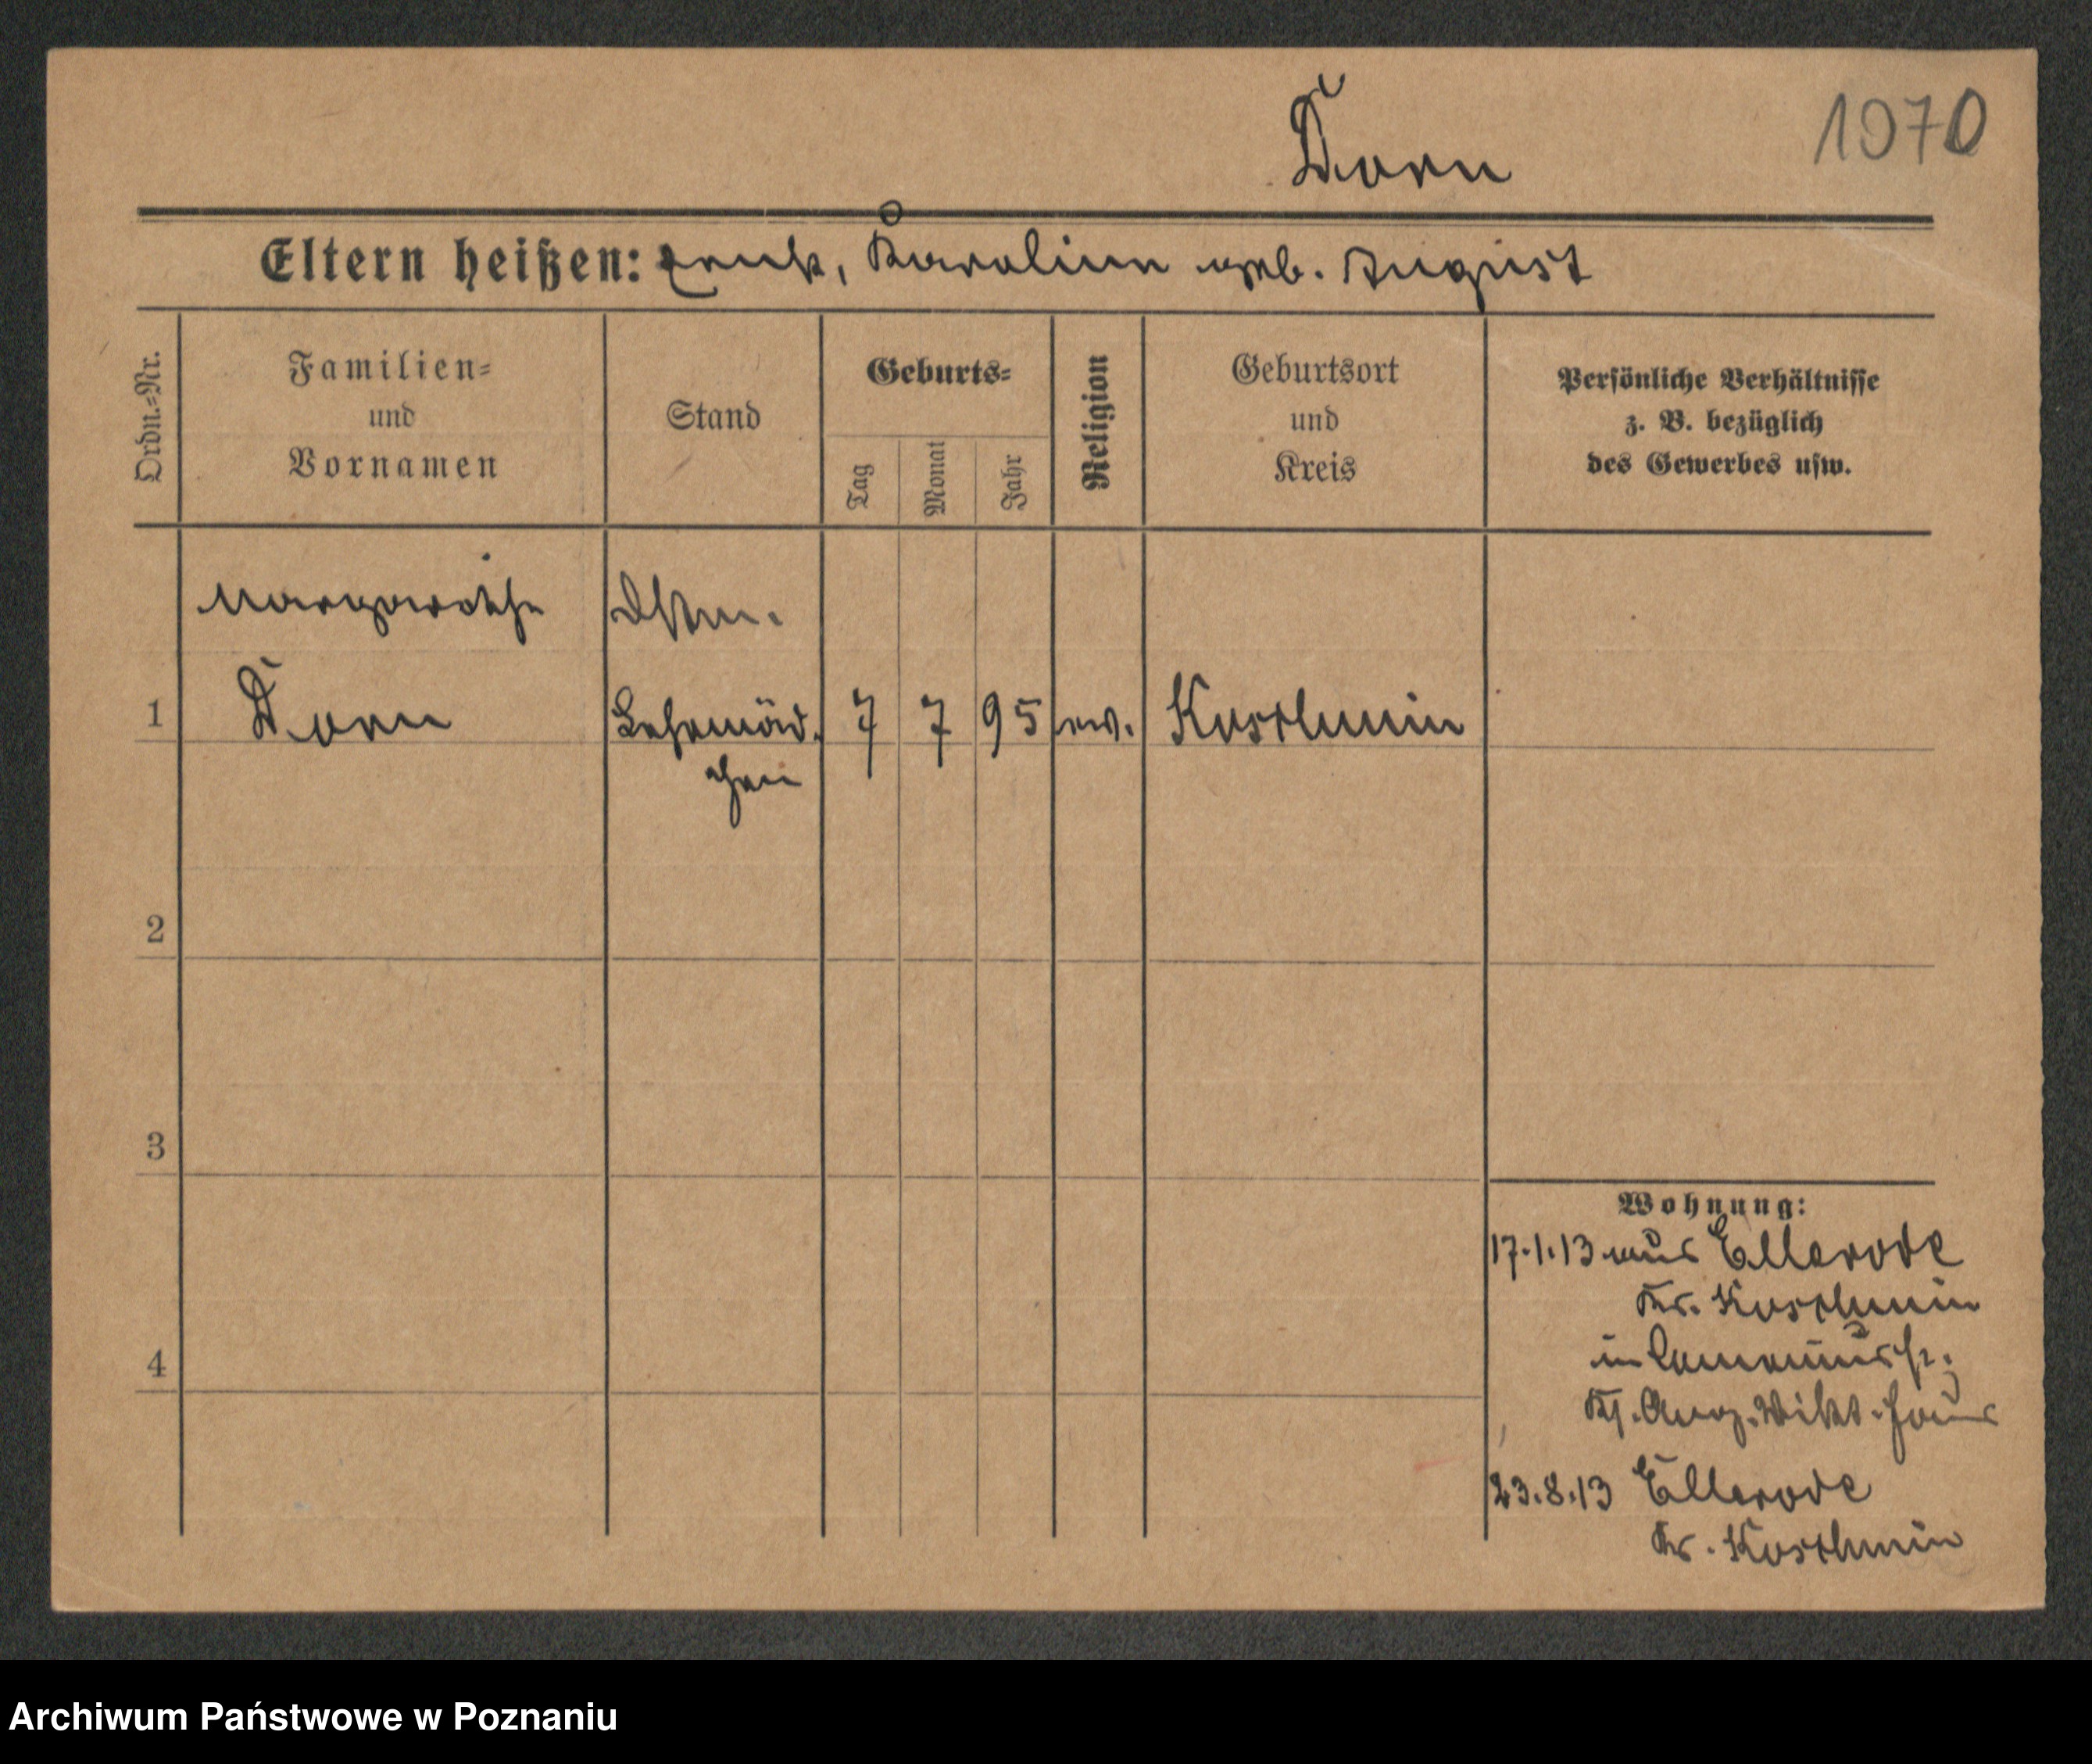 Dorn
1070
Eltern heißen: Franz, Karoline geb. August
Ordn.-Nr.
Familien-
und
Vornamen
Stand
Geburts-
Tag
Monat
Jahr
Religion
Geburtsort
und
Kreis
Persönliche Verhältnisse
z. B. bezüglich
des Gewerbes usw.
Margarethe
1 Dorn Lehrmäd. 7 7 95 ev. Koschmin
chen
2
3
4
Wohnung:
17.1.13 aus Ellerode
Kr. Koschmin
in
Vikt. Haus
23.8.13 Ellerode
Kr. Koschmin
Archiwum Państwowe w Poznaniu